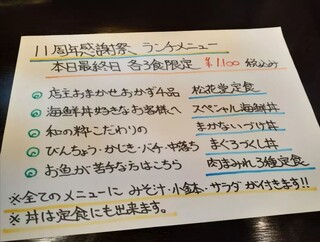 11周年感謝祭 ランチメニュー
本日最終日 各3食限定 ¥1,100 税込み
店主おまかせおかず4品 松花堂定食
海鮮丼好きなお客様へ スペシャル海鮮丼
和の粋こだわりの まかないづけ丼
びんちょう・かじき・バチ・中落ち まぐろづくし丼
お魚が苦手な方はこちら 肉まみれ3種定食
※全てのメニューに みそ汁・小鉢・サラダ が付きます!!
※丼は定食にも出来ます。